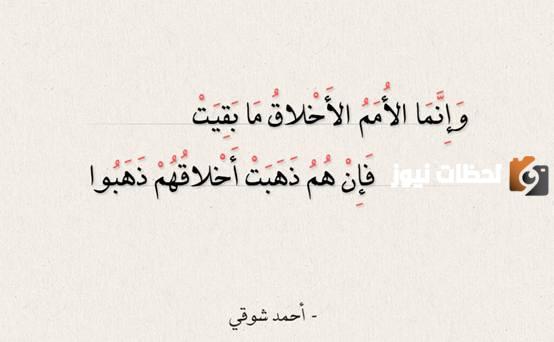 وَإِنَّمَا الأُمَمُ الأَخْلاقُ مَا بَقِيَتْ
فَإِنْ هُمُ ذَهَبَتْ أَخْلاقُهُمْ ذَهَبُوا
لحظات نيوز
- أحمد شوقي